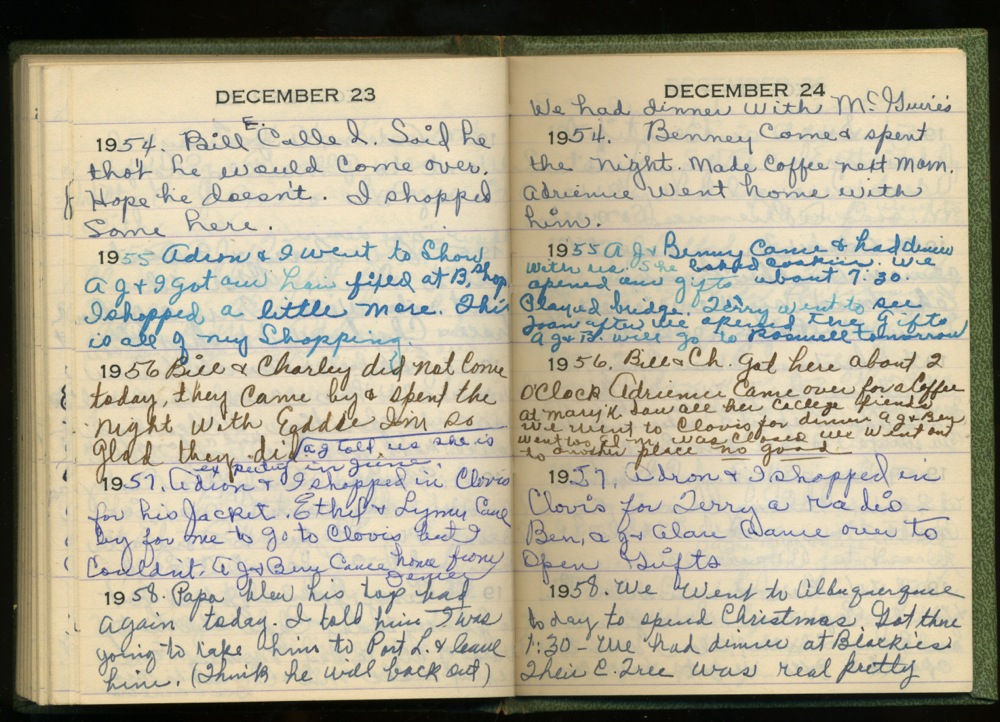 DECEMBER 23
1954. Bill E. Calle L. Said he
tho't he would come over.
Hope he doesn't. I shopped
Some here.
1955 Adron & I went to Show
A g & I got our hair fixed at B. Shop
I shopped a little more. This
is all of my Shopping.
1956 Bill & Charley did not Come
today, they came by & spent the
night with Eddie I'm so
Glad they did A g told us she is
expecting in June.
1957. Adron & I shopped in Clovis
for his Jacket. Ethel & Lynny Came
by for me to go to Clovis but I
Couldn't. A g & Ben Came home from
Denver
1958. Papa blew his top bad
again today. I told him I was
going to take him to Port L. & leave
him. (Think he will back out)
DECEMBER 24
We had dinner with McGuire's
1954. Benney Come & spent
the night. Made Coffee next Morn.
Adrience Went home with
him.
1955 A g & Benny Came & had dinner
with us. She baked cookies. We
opened our gifts about 7:30.
Played bridge. Terry went to see
Joan after we opened the gifts
A g & B. will go to Roswell tomorrow
1956. Bill & Ch. Got here about 2
O'Clock Adrience Came over for a Coffee
at Mary K saw all her College friends
We went to Clovis for dinner A g & Ben
went too. El M. was Closed we went out
to another place no good.
1957. Adron & I shopped in
Clovis for Terry a radio -
Ben, a g & Alan Came over to
Open Gifts
1958. We Went to Albuquerque
today to spend Christmas. Got there
1:30 - We had dinner at Blackies
Their C. Tree was real pretty